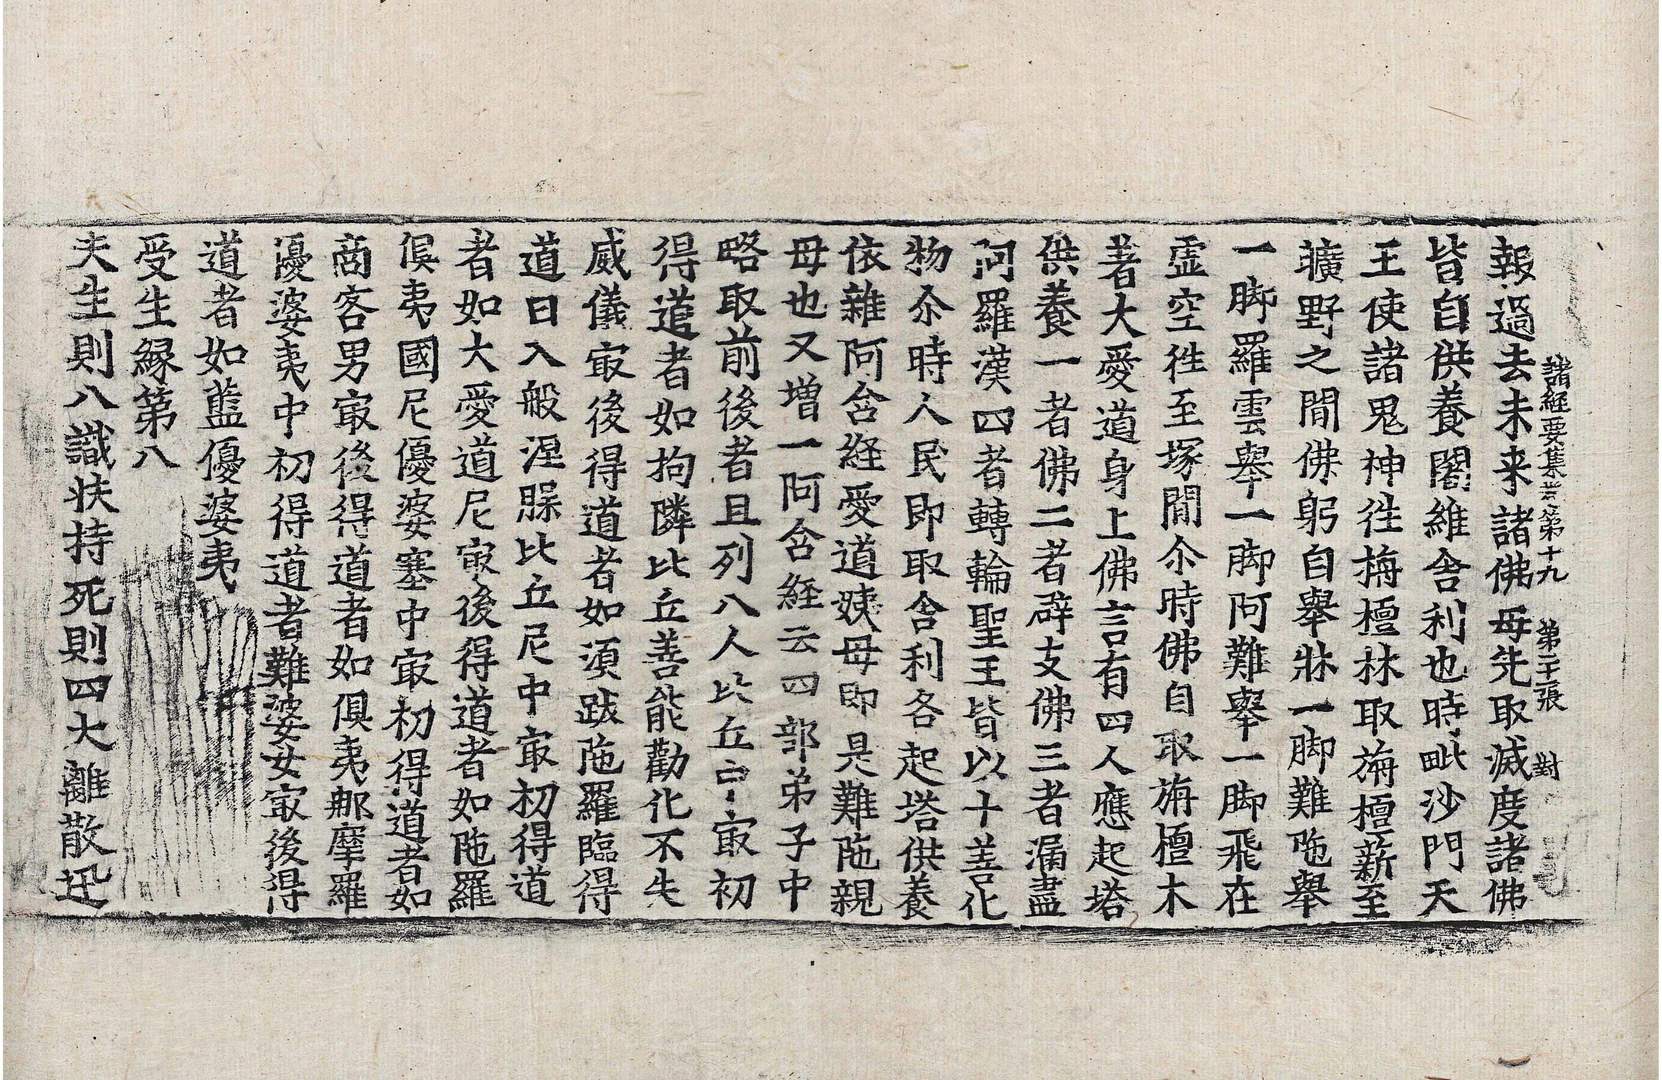 諸經要集卷第十九　第二十張　對
報過去未来諸佛母先取滅度諸佛
皆自供養闍維舍利也時毗沙門天
王使諸鬼神徃栴檀林取旃檀薪至
曠野之閒佛躬自舉牀一脚難陁舉
一脚羅雲舉一脚阿難舉一脚飛在
虛空徃至塚閒尒時佛自取旃檀木
著大愛道身上佛言有四人應起塔
供養一者佛二者辟支佛三者漏盡
阿羅漢四者轉輪聖王皆以十善化
物尒時人民即取舍利各起塔供養
依雜阿含経愛道姨母即是難陁親
母也又增一阿含経云四部弟子中
略取前後者且列八人比丘中㝡初
得道者如拘隣比丘善能勸化不失
威儀㝡後得道者如須跋陁羅臨得
道日入般涅槃比丘尼中㝡初得道
者如大愛道尼㝡後得道者如陁羅
俱夷國尼優婆塞中㝡初得道者如
商客男㝡後得道者如俱夷那摩羅
優婆夷中初得道者難婆女㝡後得
道者如藍優婆夷
受生縁第八
夫生則八識扶持死則四大離散迁